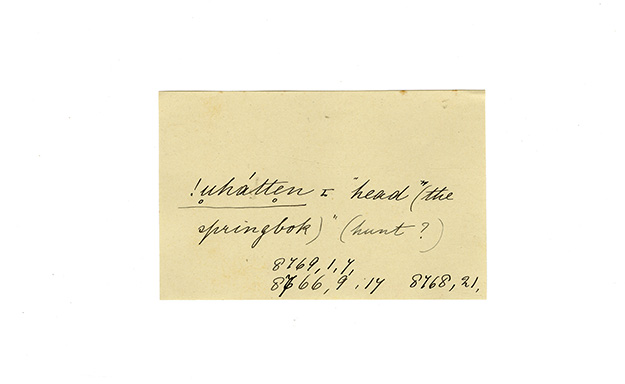 !u̥hátte̥n I "head" (the
springbok)" (hunt?)
8769, 1, 7,
8766, 9. 17 8768, 21,